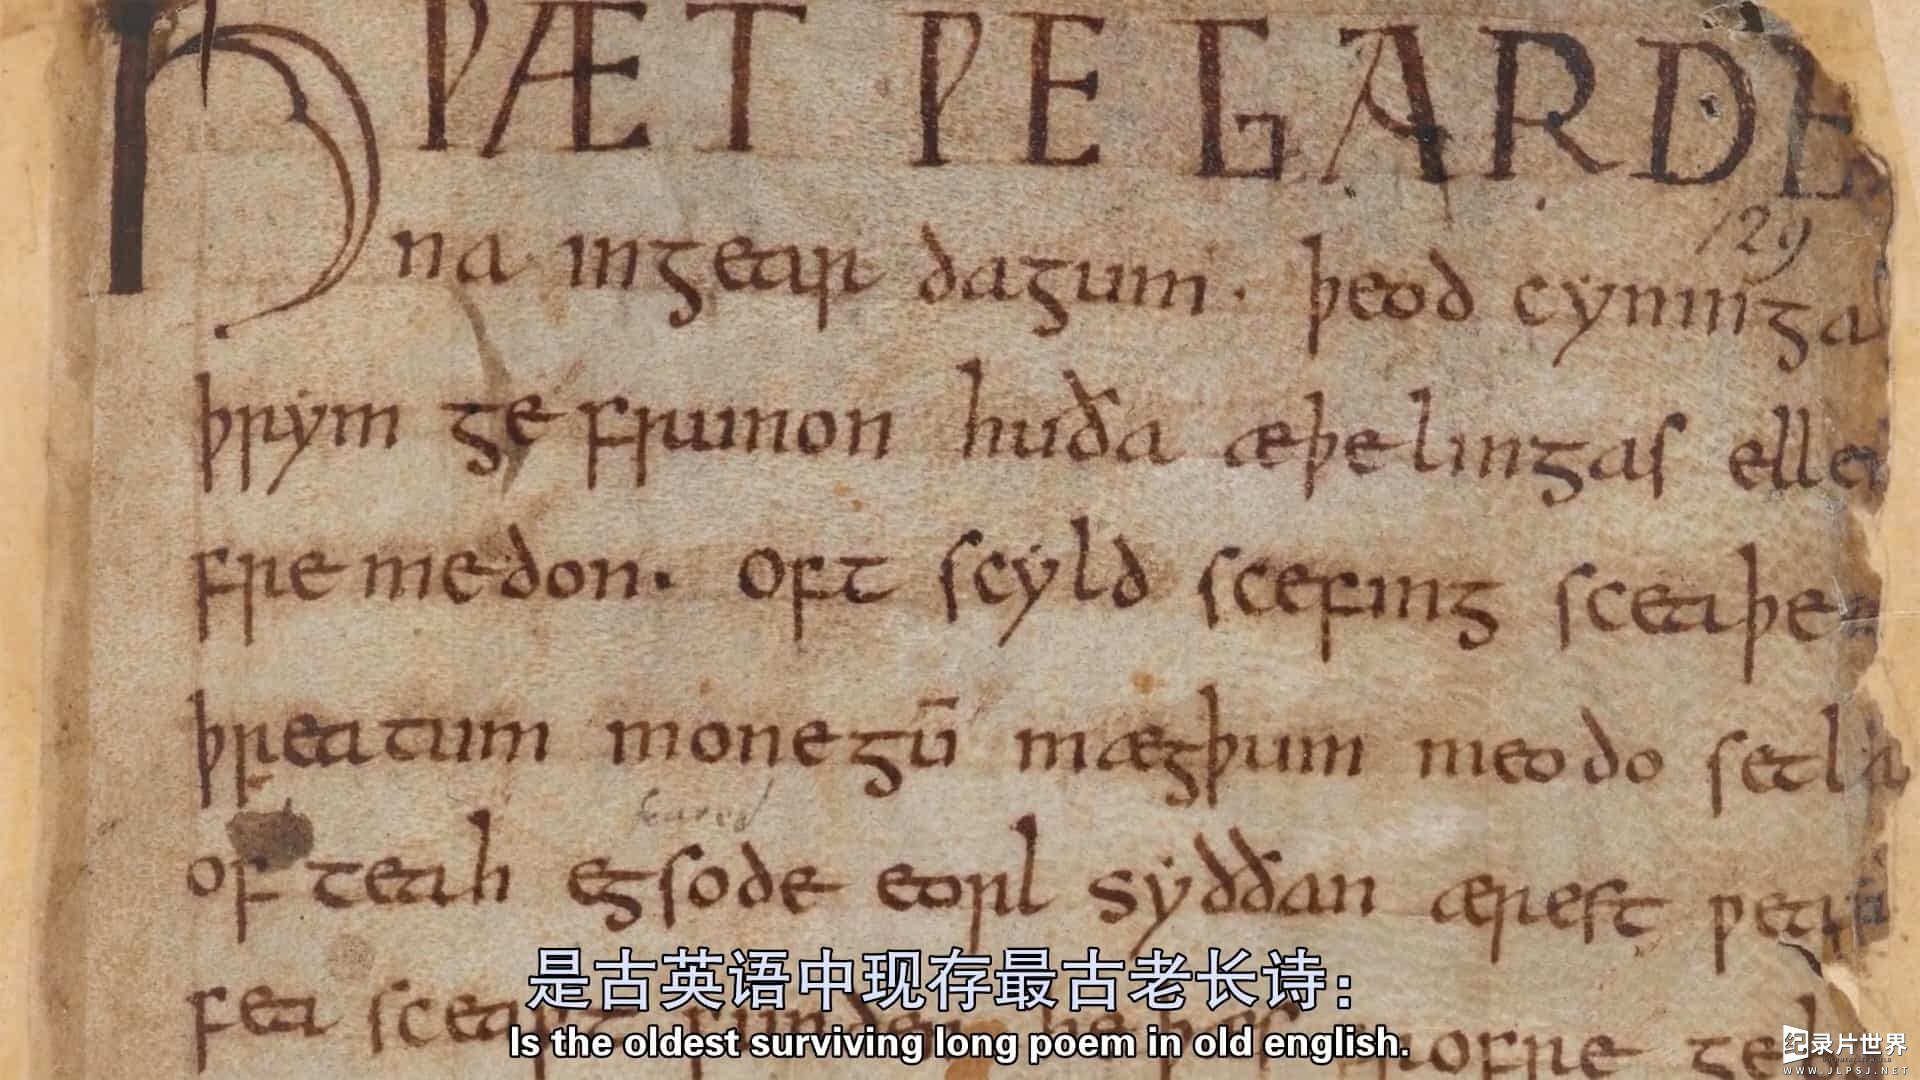 HǷÆT ǷE GARDE
129
na ingear dagum. þeod cyninga
þrym ge frunon huða æþelingas elle
fre medon. oft scyld scefing sceaþe
þreatum monegū mægþum meodo setla
feared
of teah egsode eorl syððan ærest ƿear
fea sceaft funden he þæs frofre geb
是古英语中现存最古老长诗：
Is the oldest surviving long poem in old english.
纪录片世界
WWW.JLPSJ.NET